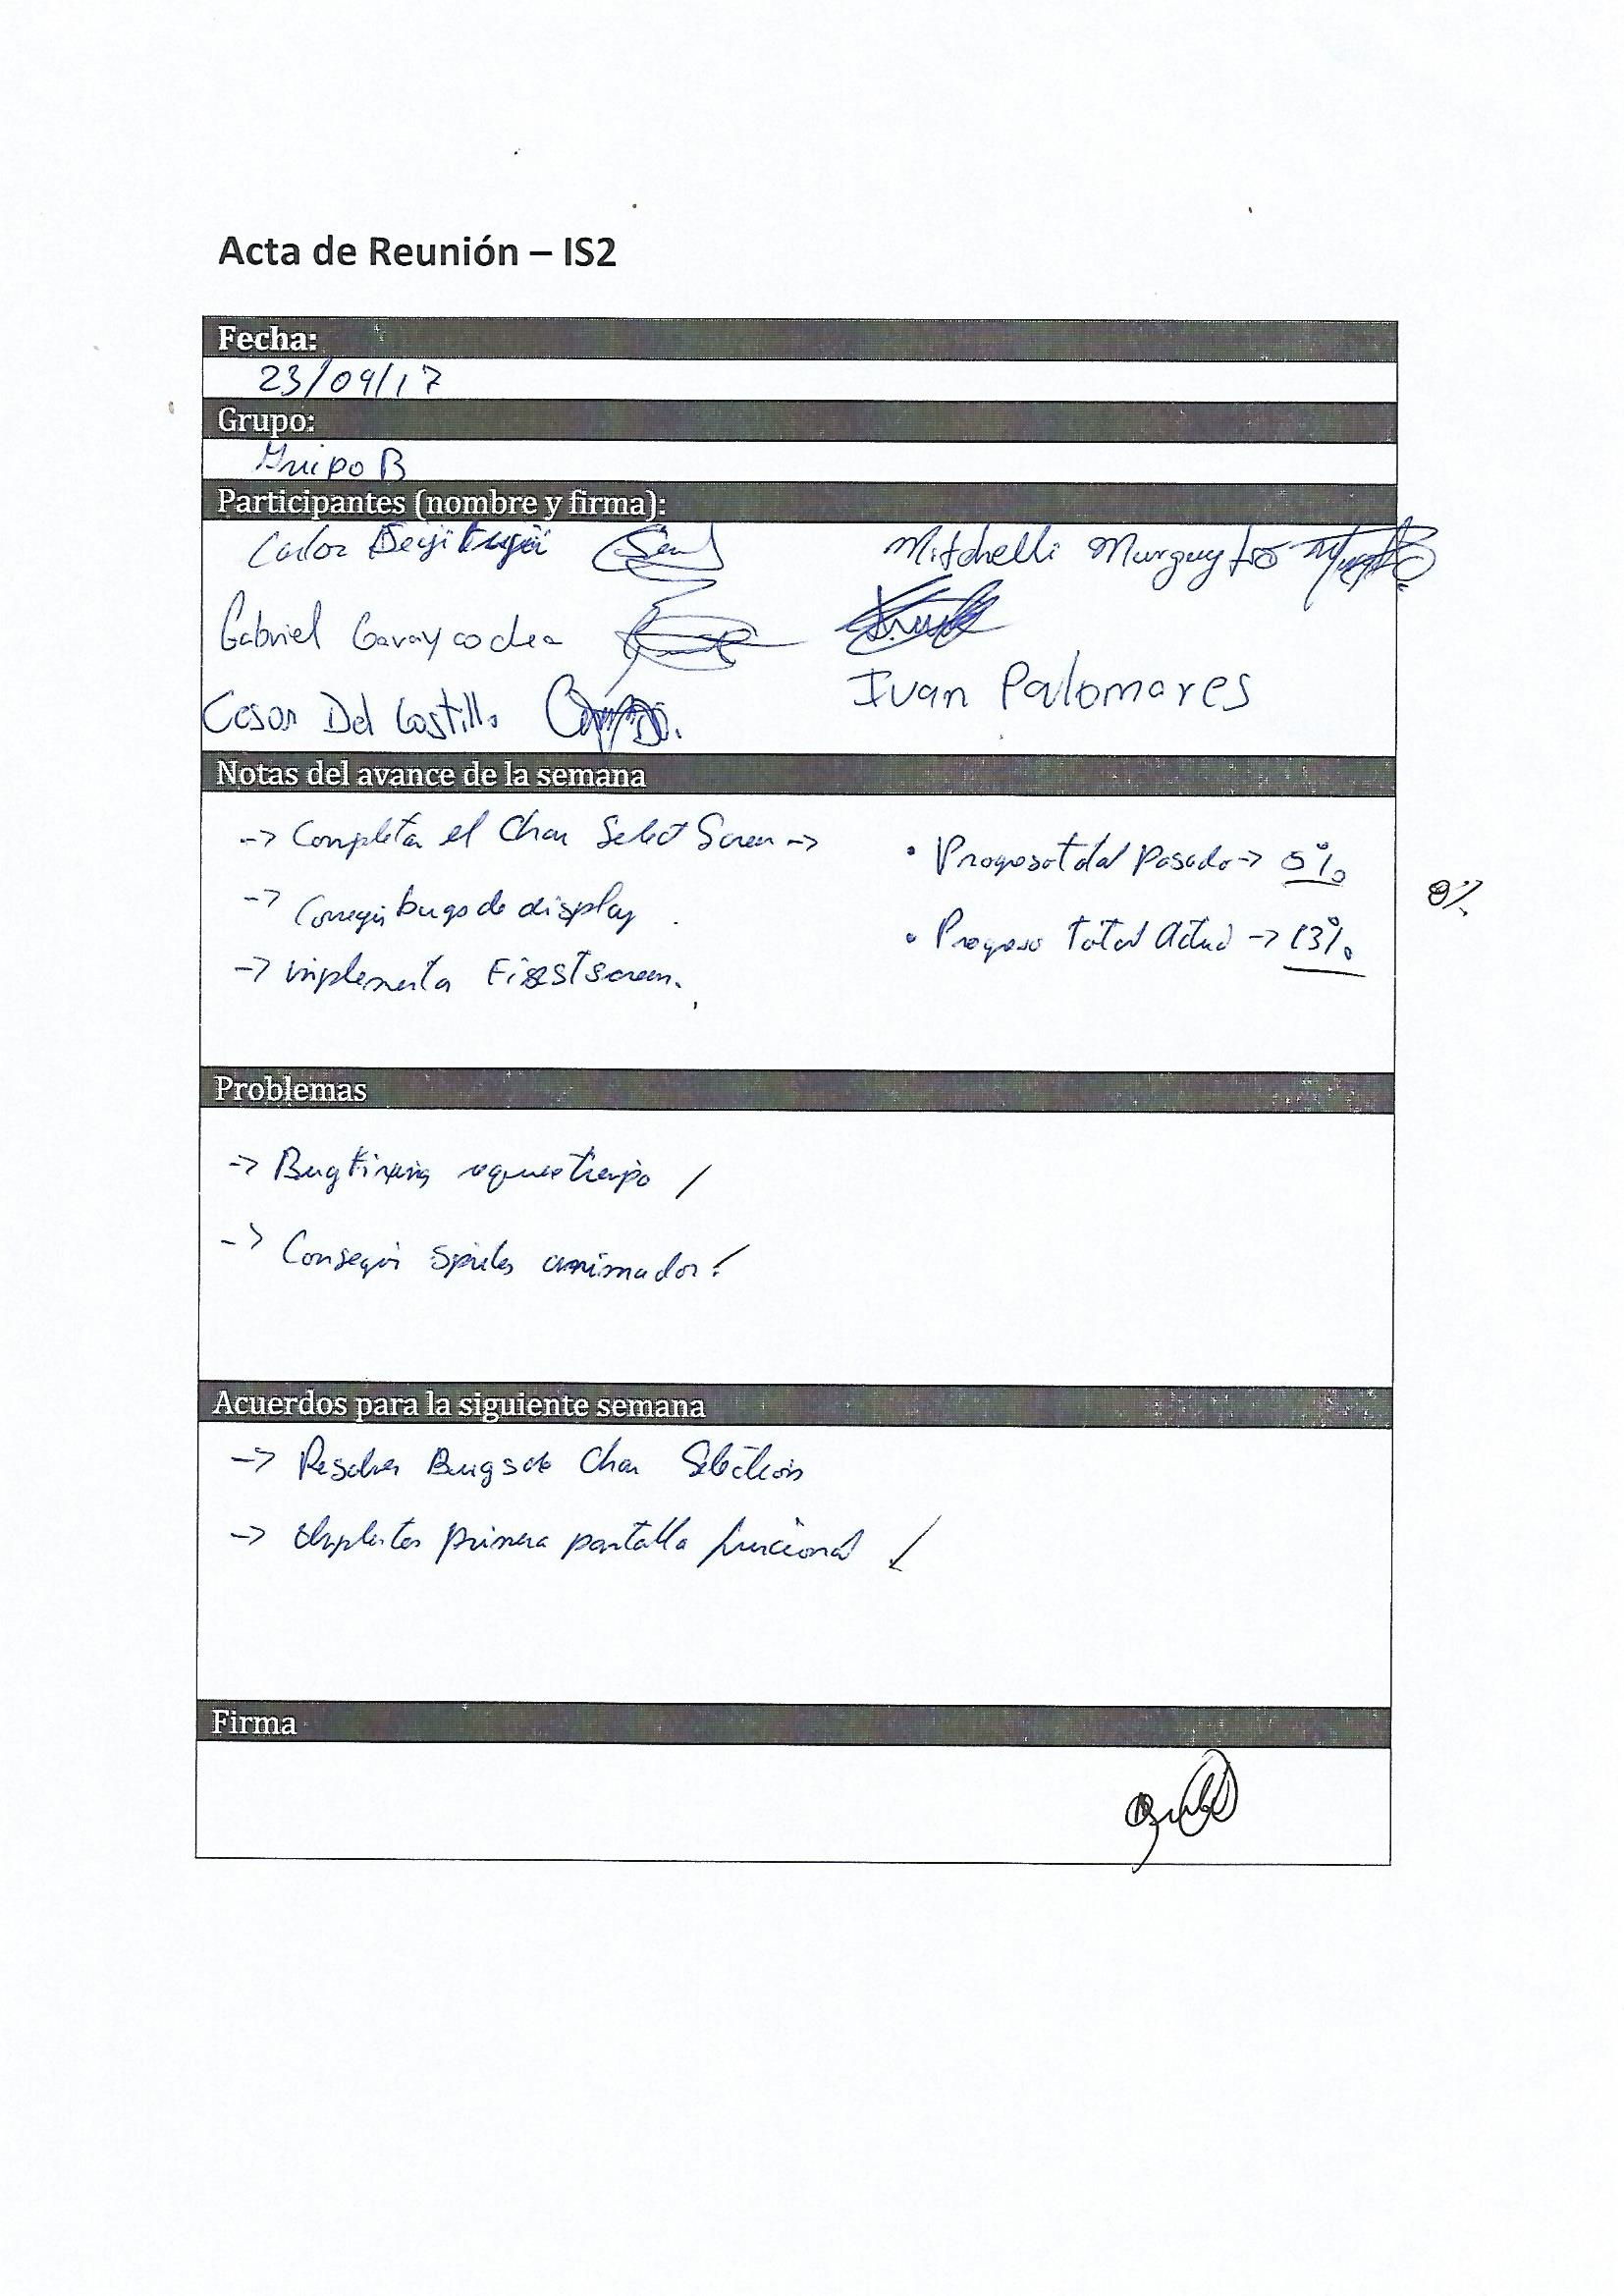 Acta de Reunión – IS2
Fecha:
23/09/17
Grupo:
Grupo B
Participantes (nombre y firma):
Carlos
Mitchelli
Gabriel Garaycochea
Cesar Del Castillo
Ivan Palomares
Notas del avance de la semana
-> Completar el Char Select Screen ->
-> Corregir bugs de display
-> implementar Firstscreen.
• Progreso total pasado -> 5%
8%
• Progreso total actual -> 13%
Problemas
-> Bugfixing requiere tiempo
-> Conseguir sprites
Acuerdos para la siguiente semana
-> Resolver Bugs de Char Selection
-> primera pantalla funcional
Firma